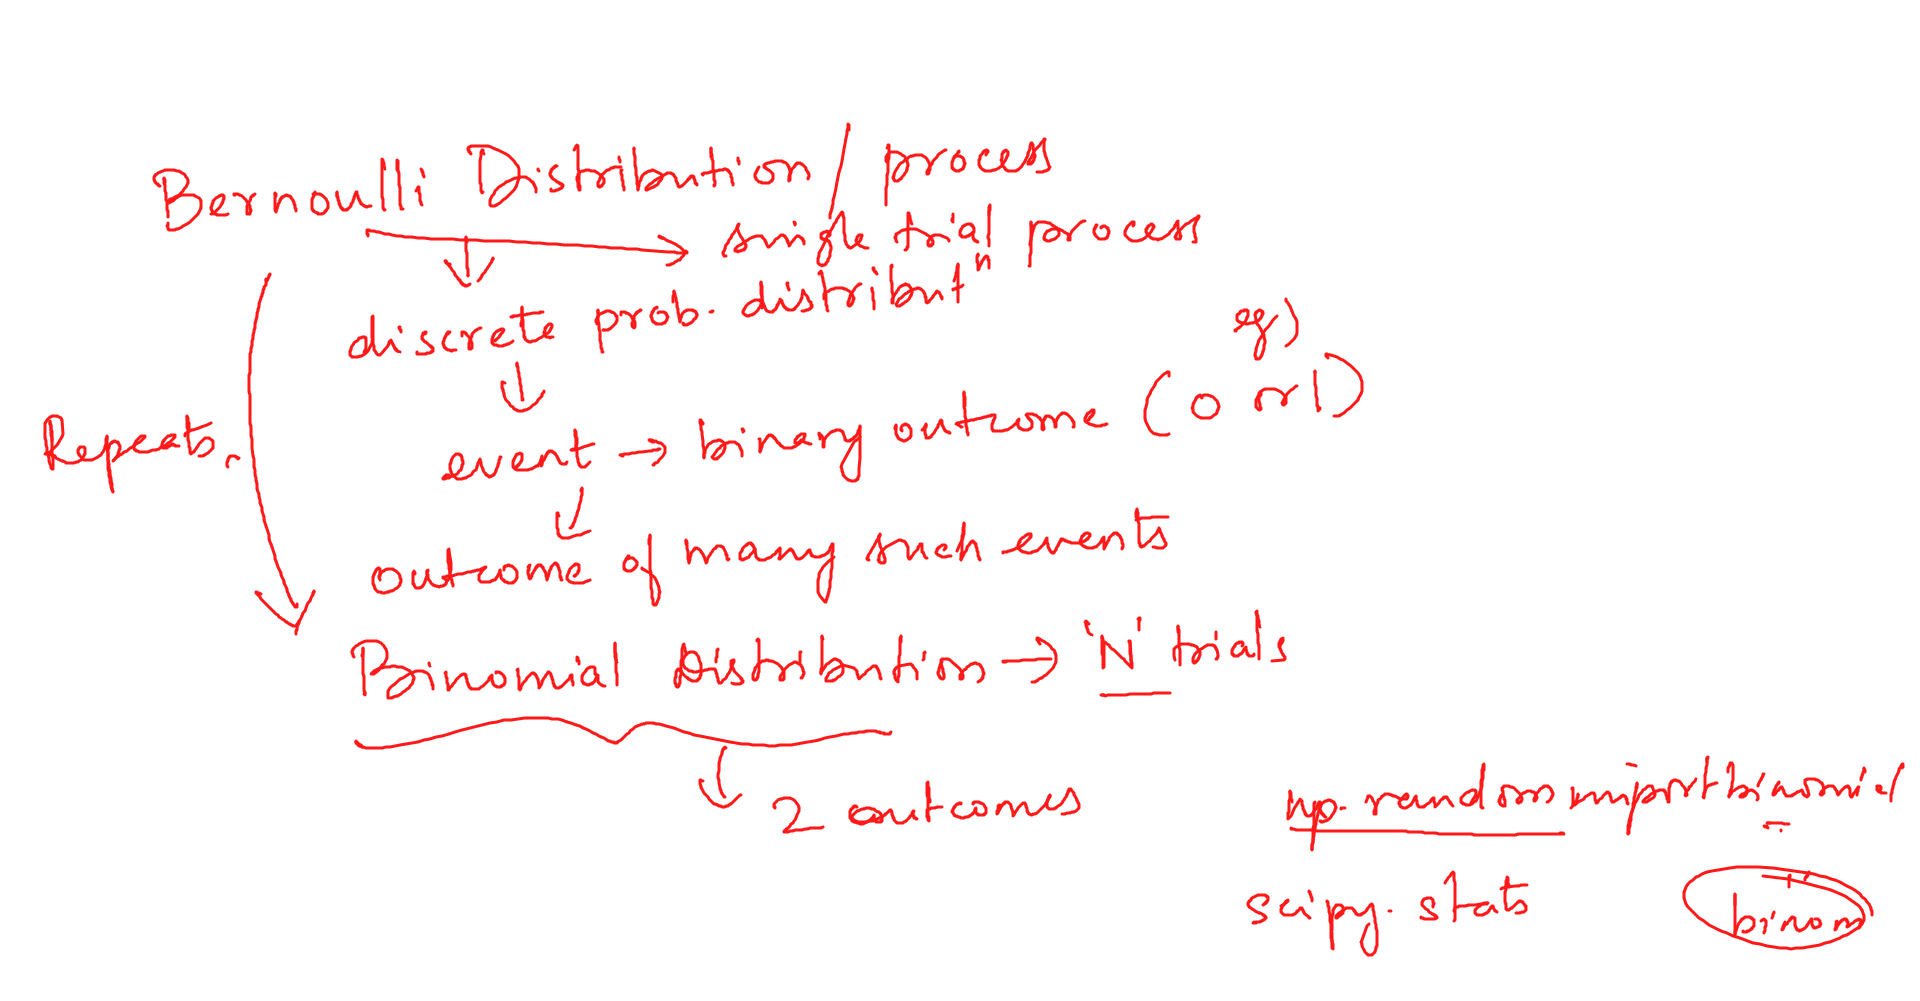 Bernoulli Distribution / process
→ single trial process
discrete prob. distributⁿ
eg)
event → binary outcome (0 or 1)
Repeats.
outcome of many such events
Binomial Distribution → 'N' trials
2 outcomes
np.random import binomial
scipy.stats binom